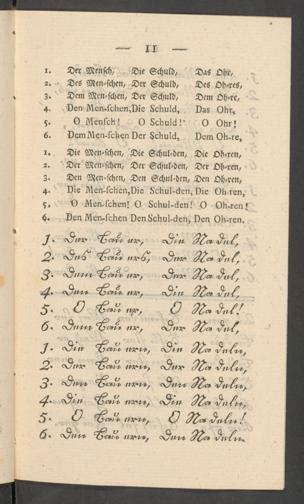 — 11 —
1. Der Mensch, Die Schuld, Das Ohr,
2. Des Men-schen, Der Schuld, Des Oh-res,
3. Dem Men-schen, Der Schuld, Dem Oh-re,
4. Den Men-schen, Die Schuld, Das Ohr,
5. O Mensch! O Schuld! O Ohr!
6. Dem Men-schen Der Schuld, Dem Oh-re,
1. Die Men-schen, Die Schul-den, Die Oh-ren,
2. Der Men-schen, Der Schul-den, Der Oh-ren,
3. Den Men-schen, Den Schul-den, Den Oh-ren,
4. Die Men-schen, Die Schul-den, Die Oh-ren,
5. O Men-schen! O Schul-den! O Oh-ren!
6. Den Men-schen Den Schul-den, Den Oh-ren.
1. Der Bau er, Die Na del,
2. Des Bau ers, Der Na del,
3. Dem Bau er, Der Na del,
4. Den Bau er, Die Na del,
5. O Bau er, O Na del!
6. Dem Bau er, Der Na del,
1. Die Bau ern, Die Na deln,
2. Der Bau ern, Der Na deln,
3. Den Bau ern, Den Na deln,
4. Die Bau ern, Die Na deln,
5. O Bau ern, O Na deln!
6. Den Bau ern, Den Na deln.